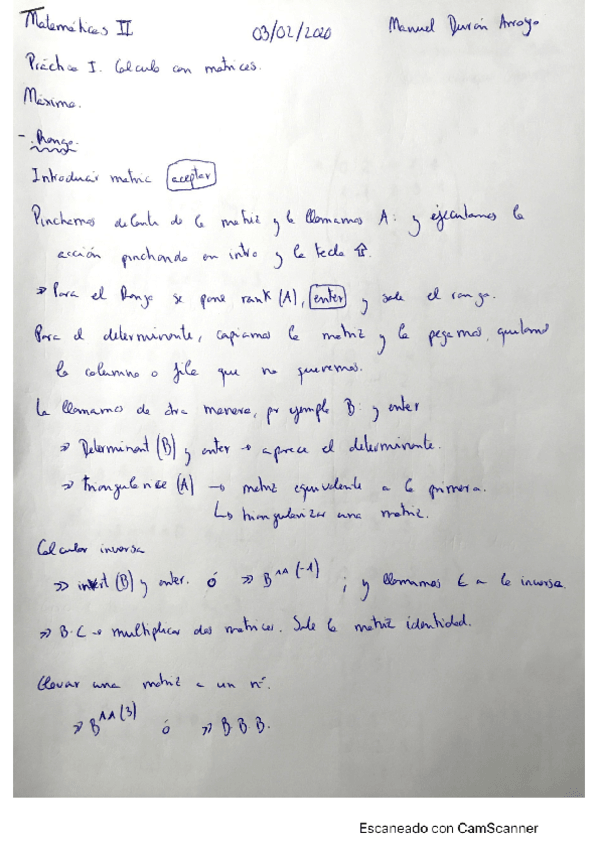 Matemáticas II 03/02/2020 Manuel Durán Arroyo
Práctica I. Cálculo con matrices.
Máxima.
- Rango.
Introducir matriz aceptar
Pinchamos delante de la matriz y la llamamos A: y ejecutamos la
acción pinchando en intro y la tecla ⇧.
» Para el Rango se pone rank (A), enter y sale el rango.
Para el determinante, copiamos la matriz y la pegamos, quitamos
la columna o fila que no queremos.
La llamamos de otra manera, por ejemplo B: y enter
» Determinant (B) y enter → aparece el determinante.
» triangularice (A) → matriz equivalente a la primera.
↳ triangularizar una matriz.
Calcular inversa
» invert (B) y enter. ó » B^^(-1) ; y llamamos C a la inversa.
» B·C → multiplicar dos matrices. Sale la matriz identidad.
Elevar una matriz a un nº.
» B^^(3) ó » B B B.
Escaneado con CamScanner